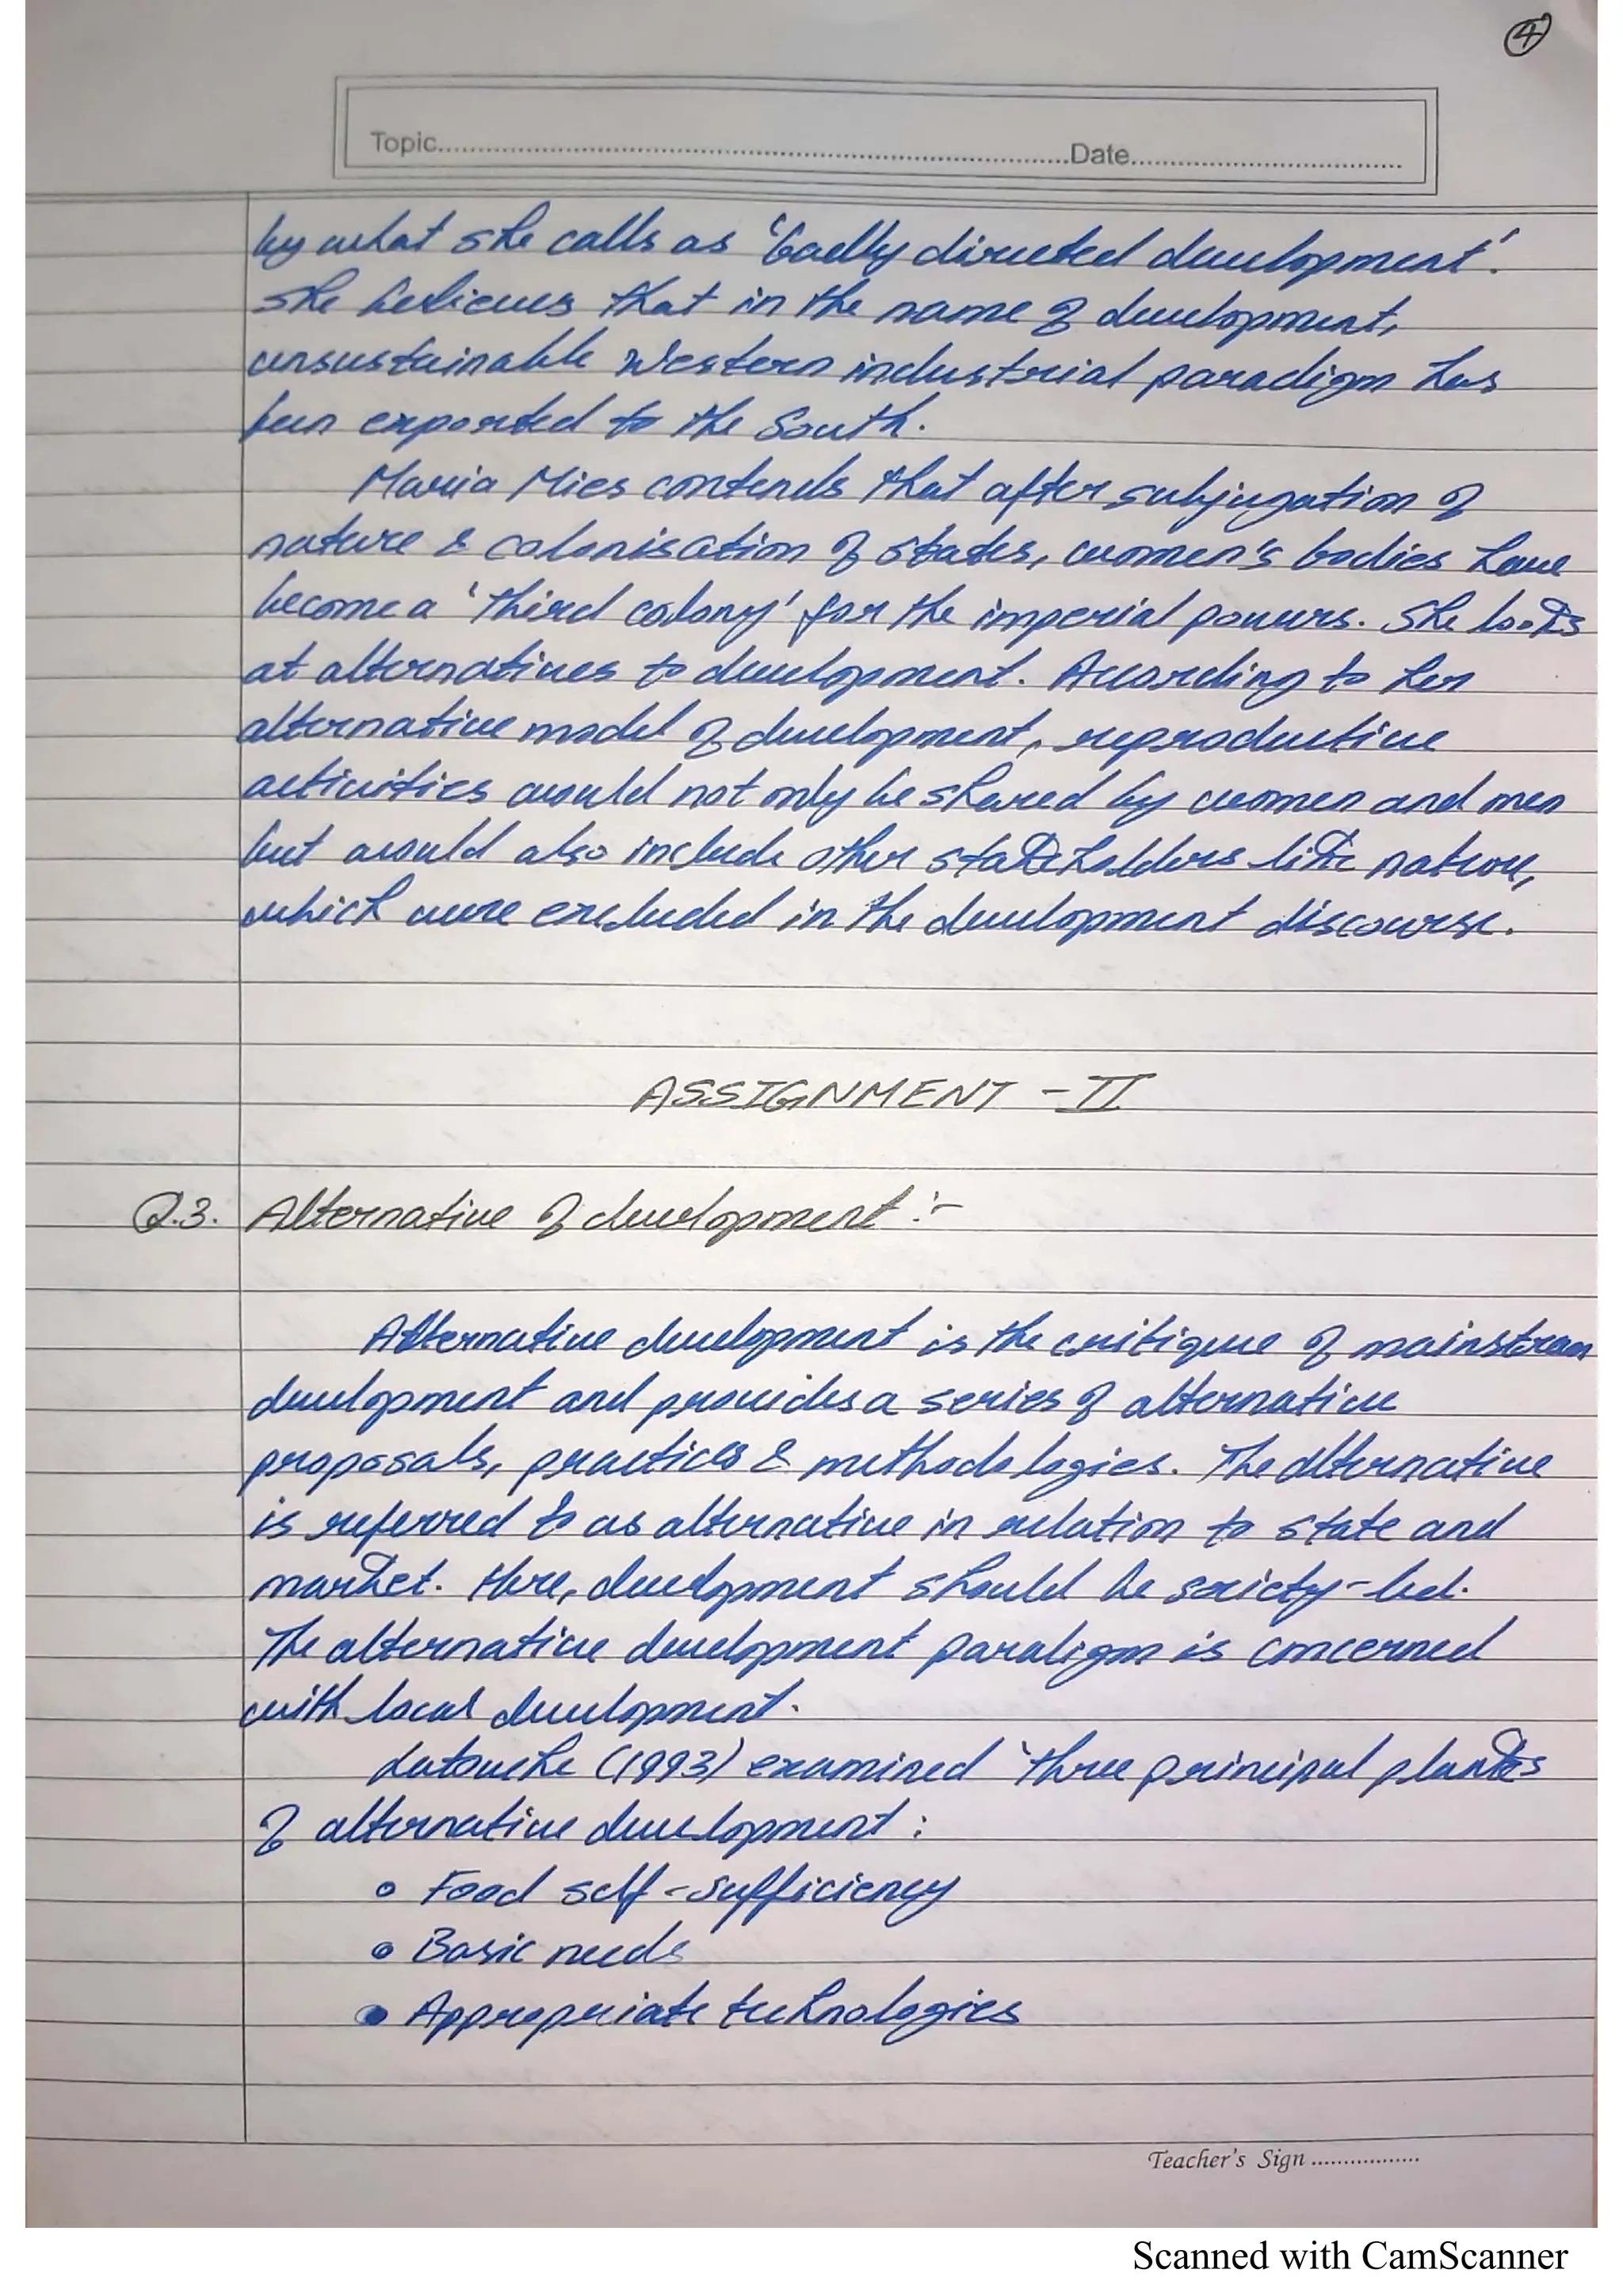 4
Topic.....Date.....
by what she calls as 'badly directed development'.
She believes that in the name of development,
unsustainable Western industrial paradigm has
been exported to the South.
Maria Mies contends that after subjugation of
nature & colonisation of states, women's bodies have
become a 'third colony' for the imperial powers. She looks
at alternatives to development. According to her
alternative model of development, reproductive
activities would not only be shared by women and men
but would also include other stakeholders like nature,
which were excluded in the development discourse.
ASSIGNMENT - II
Q.3. Alternative of development :-
Alternative development is the critique of mainstream
development and provides a series of alternative
proposals, practices & methodologies. The alternative
is referred to as alternative in relation to state and
market. Here, development should be society-led.
The alternative development paradigm is concerned
with local development.
Latouche (1993) examined 'three principal planks
of alternative development :
• Food self-sufficiency
• Basic needs
• Appropriate technologies
Teacher's Sign .....
Scanned with CamScanner